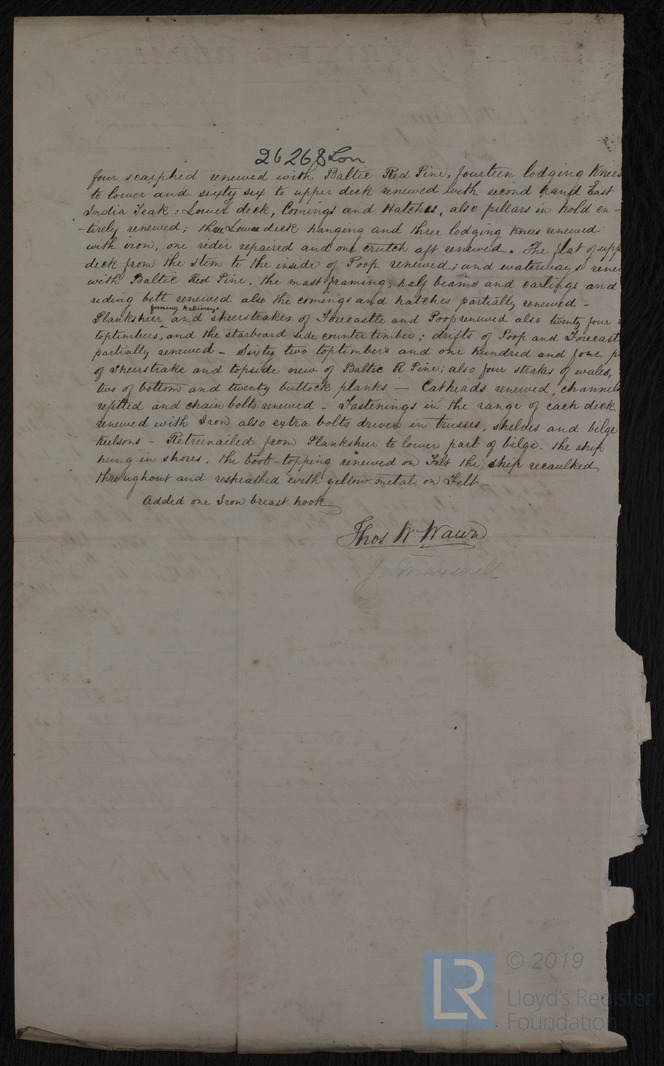 26268 Lon
four scarphed renewed with Baltic Red Pine, fourteen lodging knees
to lower and sixty six to upper deck renewed with second hand East
India Teak: Lower deck, Comings and Hatches, also pillars in hold en-
-tirely renewed; three Lower deck hanging and three lodging knees renewed
with iron, one rider repaired and one crutch aft renewed. The flat of upp
deck from the stem to the inside of Poop renewed; and waterways renew
with Baltic Red Pine, the mast framing, half beams and carlings and
riding bitt renewed also the comings and hatches partially renewed -
forming
Planksheer and sheerstrakes of Forecastle and Poop renewed also twenty four
toptimbers, and the starboard side counter timber; drifts of Poop and Forecast
partially renewed - Sixty two toptimbers and one hundred and four
of sheerstrake and topside new of Baltic R Pine; also four strakes of wales,
two of bottom and twenty buttock planks - Catheads renewed, channels
refitted and chain bolts renewed - Fastenings in the range of each deck
renewed with Iron also extra bolts driven in trusses, shelves and bilge
keelsons - Retreenailed from Planksheer to lower part of bilge. the ship
hung in shores, the boot-topping renewed on Felt the ship recaulked
throughout and resheathed with yellow metal on Felt
Added one Iron breast hook
Thos W Wawn
© 2019
LR
Lloyd's Register
Foundation